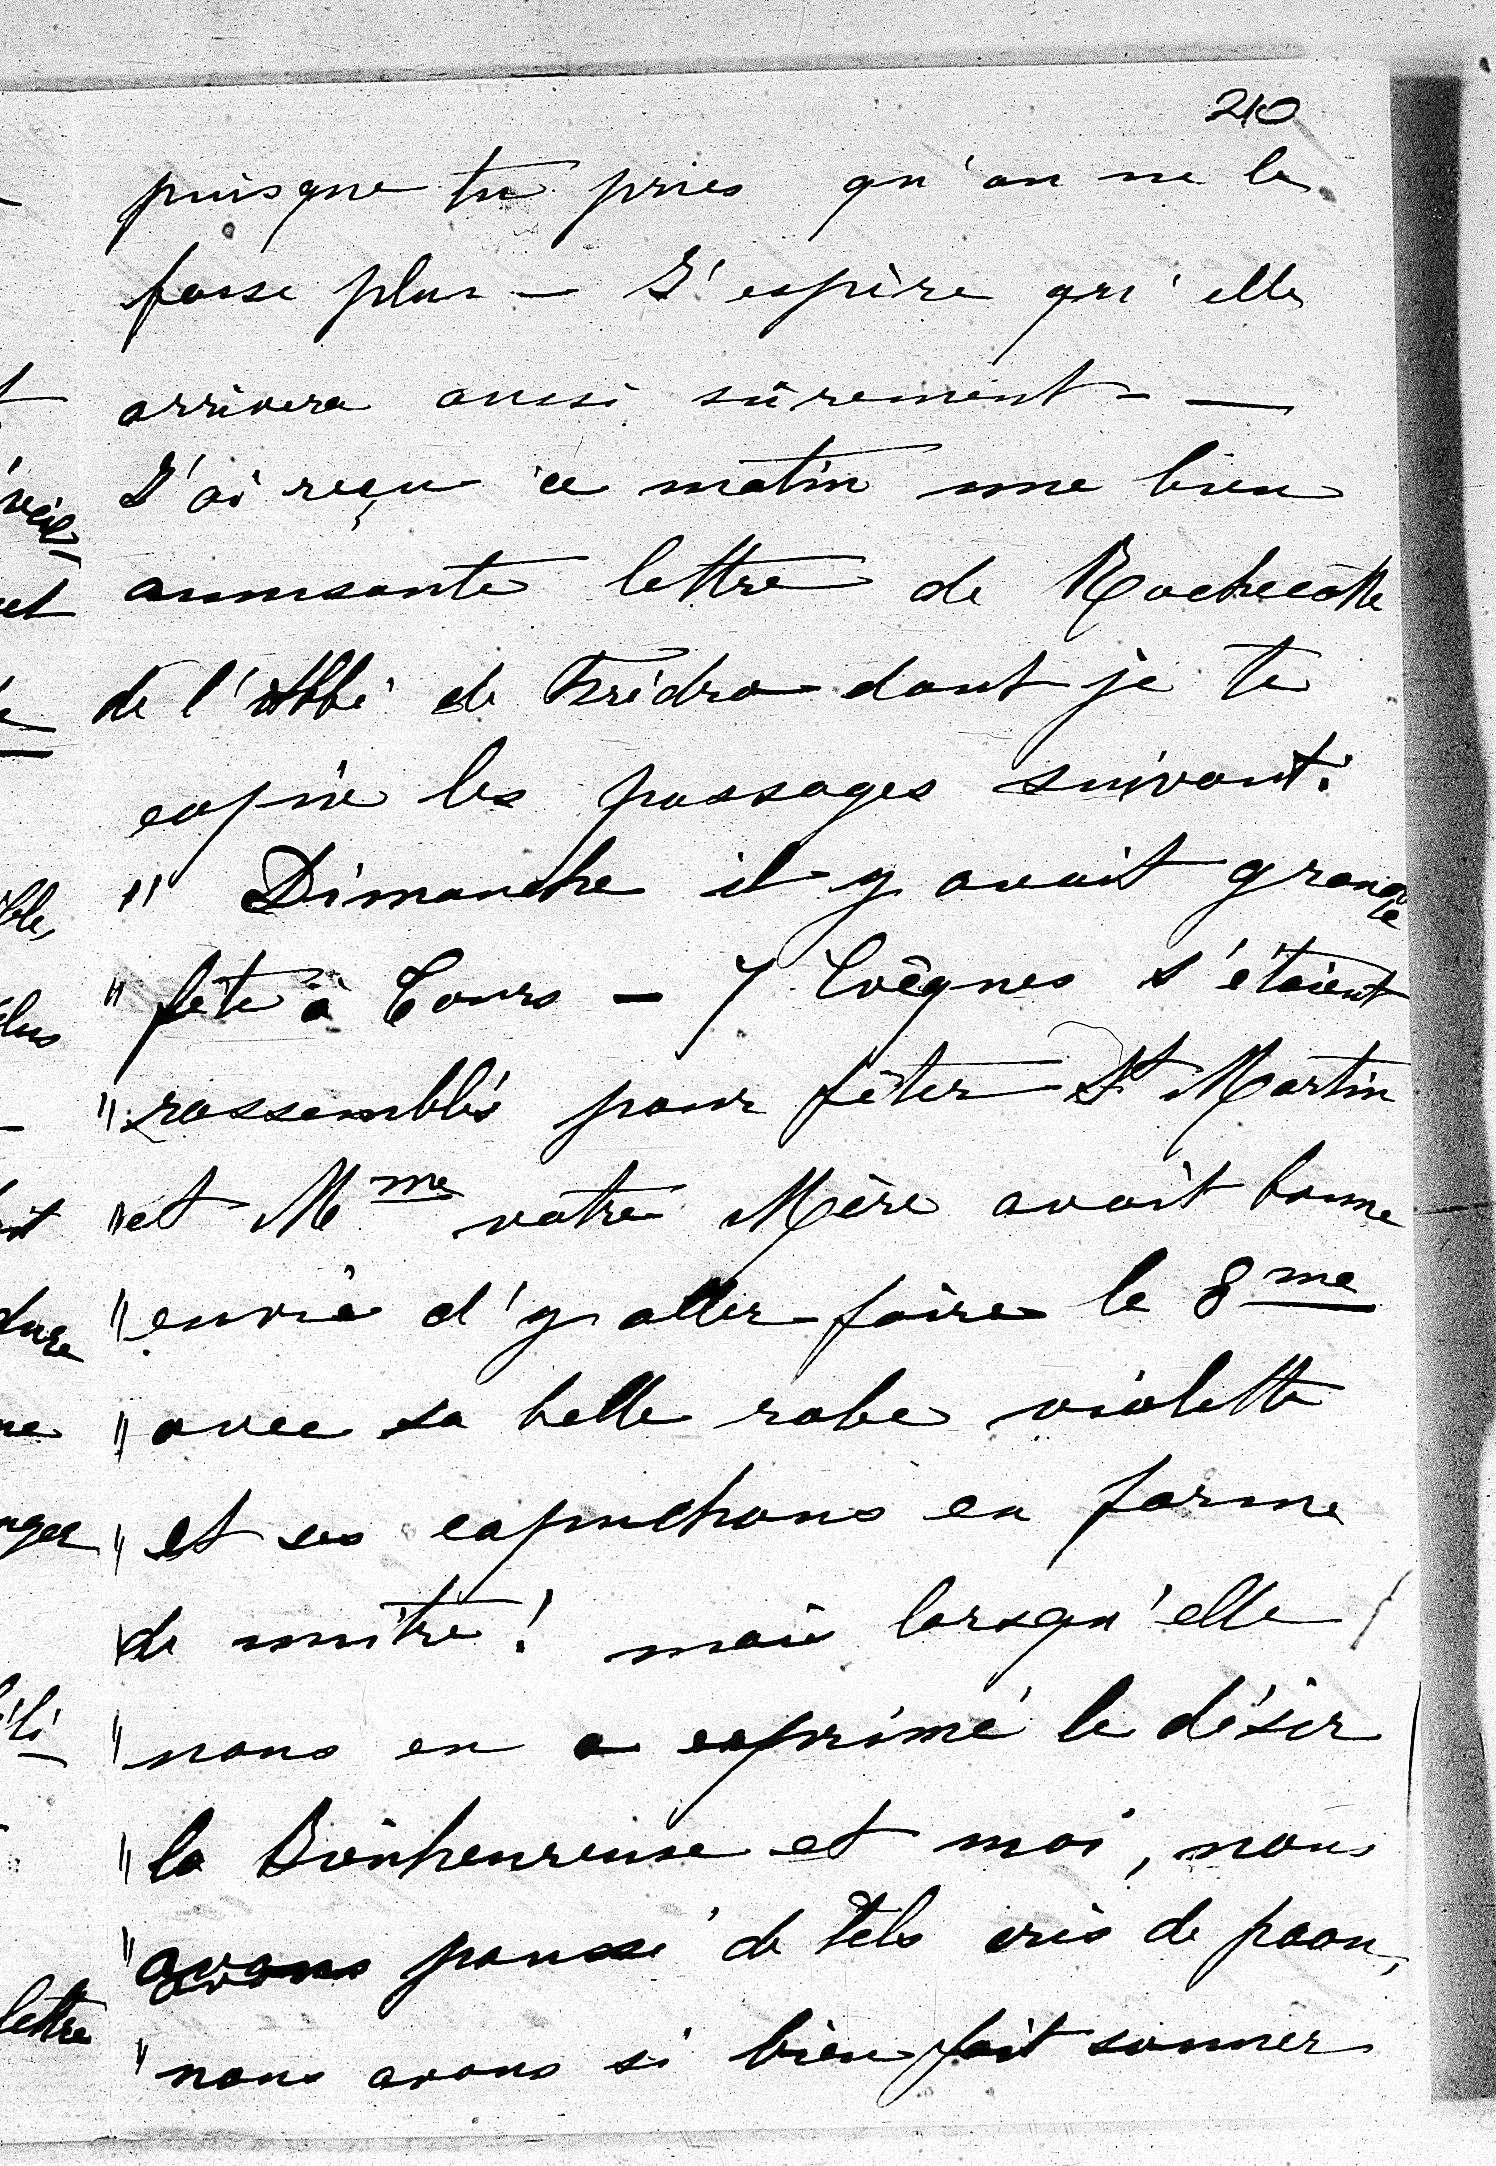 210
puisque tu pries qu'on ne le
fasse plus — J'espère qu'elle
arrivera aussi sûrement — —
J'ai reçu ce matin une bien
amusante lettre de Rochecotte
de l'Abbé de dont je te
copie les passages suivant:
" Dimanche il y avait grande
" fête à Tours — 7 Evêques s'étaient
" rassemblés pour fêter St Martin
" et Mme votre Mère avait bonne
" envie d'y aller faire le 8me
" avec sa belle robe violette
" et ses capuchons en forme
" de mitre! mais lorsqu'elle
" nous en a exprimé le désir
" la Bienheureuse et moi, nous
" avons poussé de tels cris de paon,
" nous avons si bien fait sonner